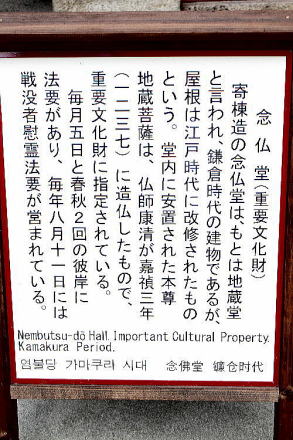 念仏堂(重要文化財)
寄棟造の念仏堂は、もとは地蔵堂
と言われ、鎌倉時代の建物であるが、
屋根は江戸時代に改修されたもの
という。堂内に安置された本尊
地蔵菩薩は、仏師康清が嘉禎三年
(一二三七)に造仏したもので、
重要文化財に指定されている。
毎月五日と春秋2回の彼岸に
法要があり、毎年八月十一日には
戦没者慰霊法要が営まれている。
Nembutsu-dō Hall. Important Cultural Property.
Kamakura Period.
염불당 가마쿠라 시대 念佛堂 镰仓时代